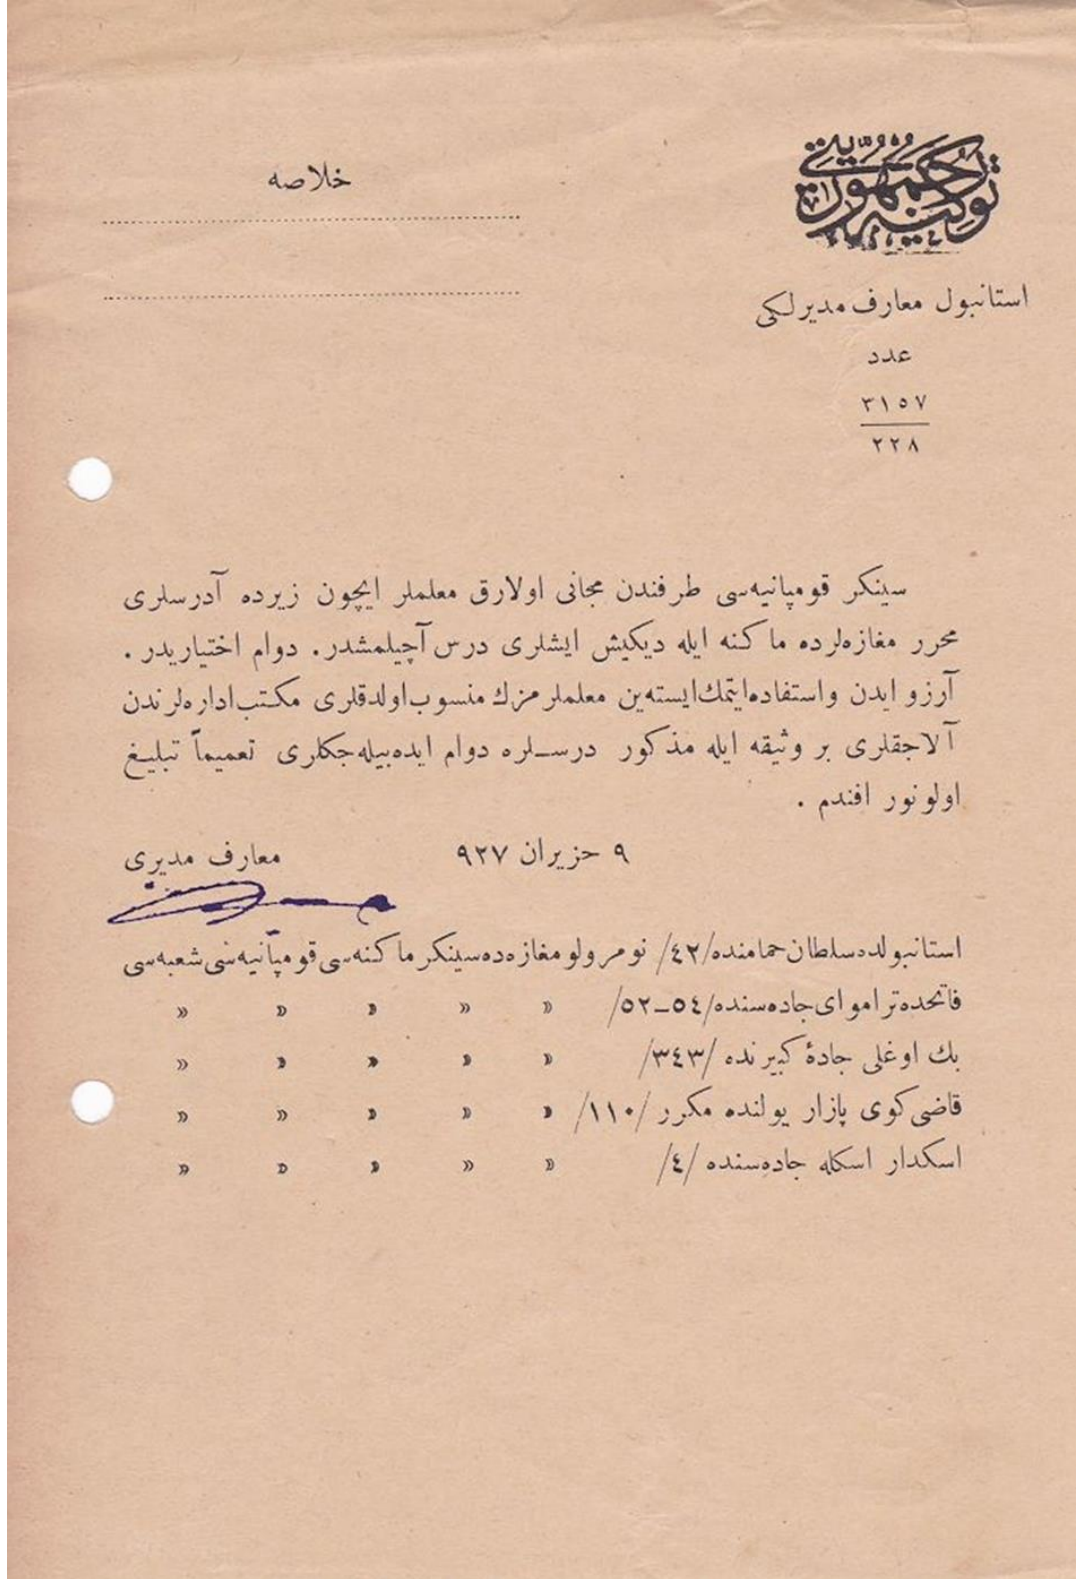 خلاصه
توركيه جمهوريتى
استانبول معارف مديرلكى
عدد
٣١٥٧
٢٢٨
سينكر قومپانيه‌سى طرفندن مجانى اولارق معلملر ايچون زيرده آدرسلرى
محرر مغازه‌لرده ماكنه ايله ديكيش ايشلرى درس آچيلمشدر. دوام اختياريدر.
آرزو ايدن واستفاده‌ايتمك‌ايسته‌ين معلملرمزك منسوب‌اولدقلرى مكتب‌اداره‌لرندن
آلاجقلرى بر وثيقه ايله مذكور درسلره دوام ايده‌بيله‌جكلرى تعميماً تبليغ
اولونور افندم .
٩ حزيران ٩٢٧ معارف مديرى
استانبولده‌سلطان‌حمامنده/٤٢/ نومرولومغازه‌ده‌سينكرماكنه‌سى‌قومپانيه‌سى‌شعبه‌سى
فاتحده‌تراموای‌جاده‌سنده/٥٤ـ٥٢/ » » » » »
بك اوغلى جادۀ كبيرنده /٣٤٣/ » » » » »
قاضى‌كوى پازار يولنده مكرر /١١٠/ » » » » »
اسكدار اسكله جاده‌سنده /٤/ » » » » »